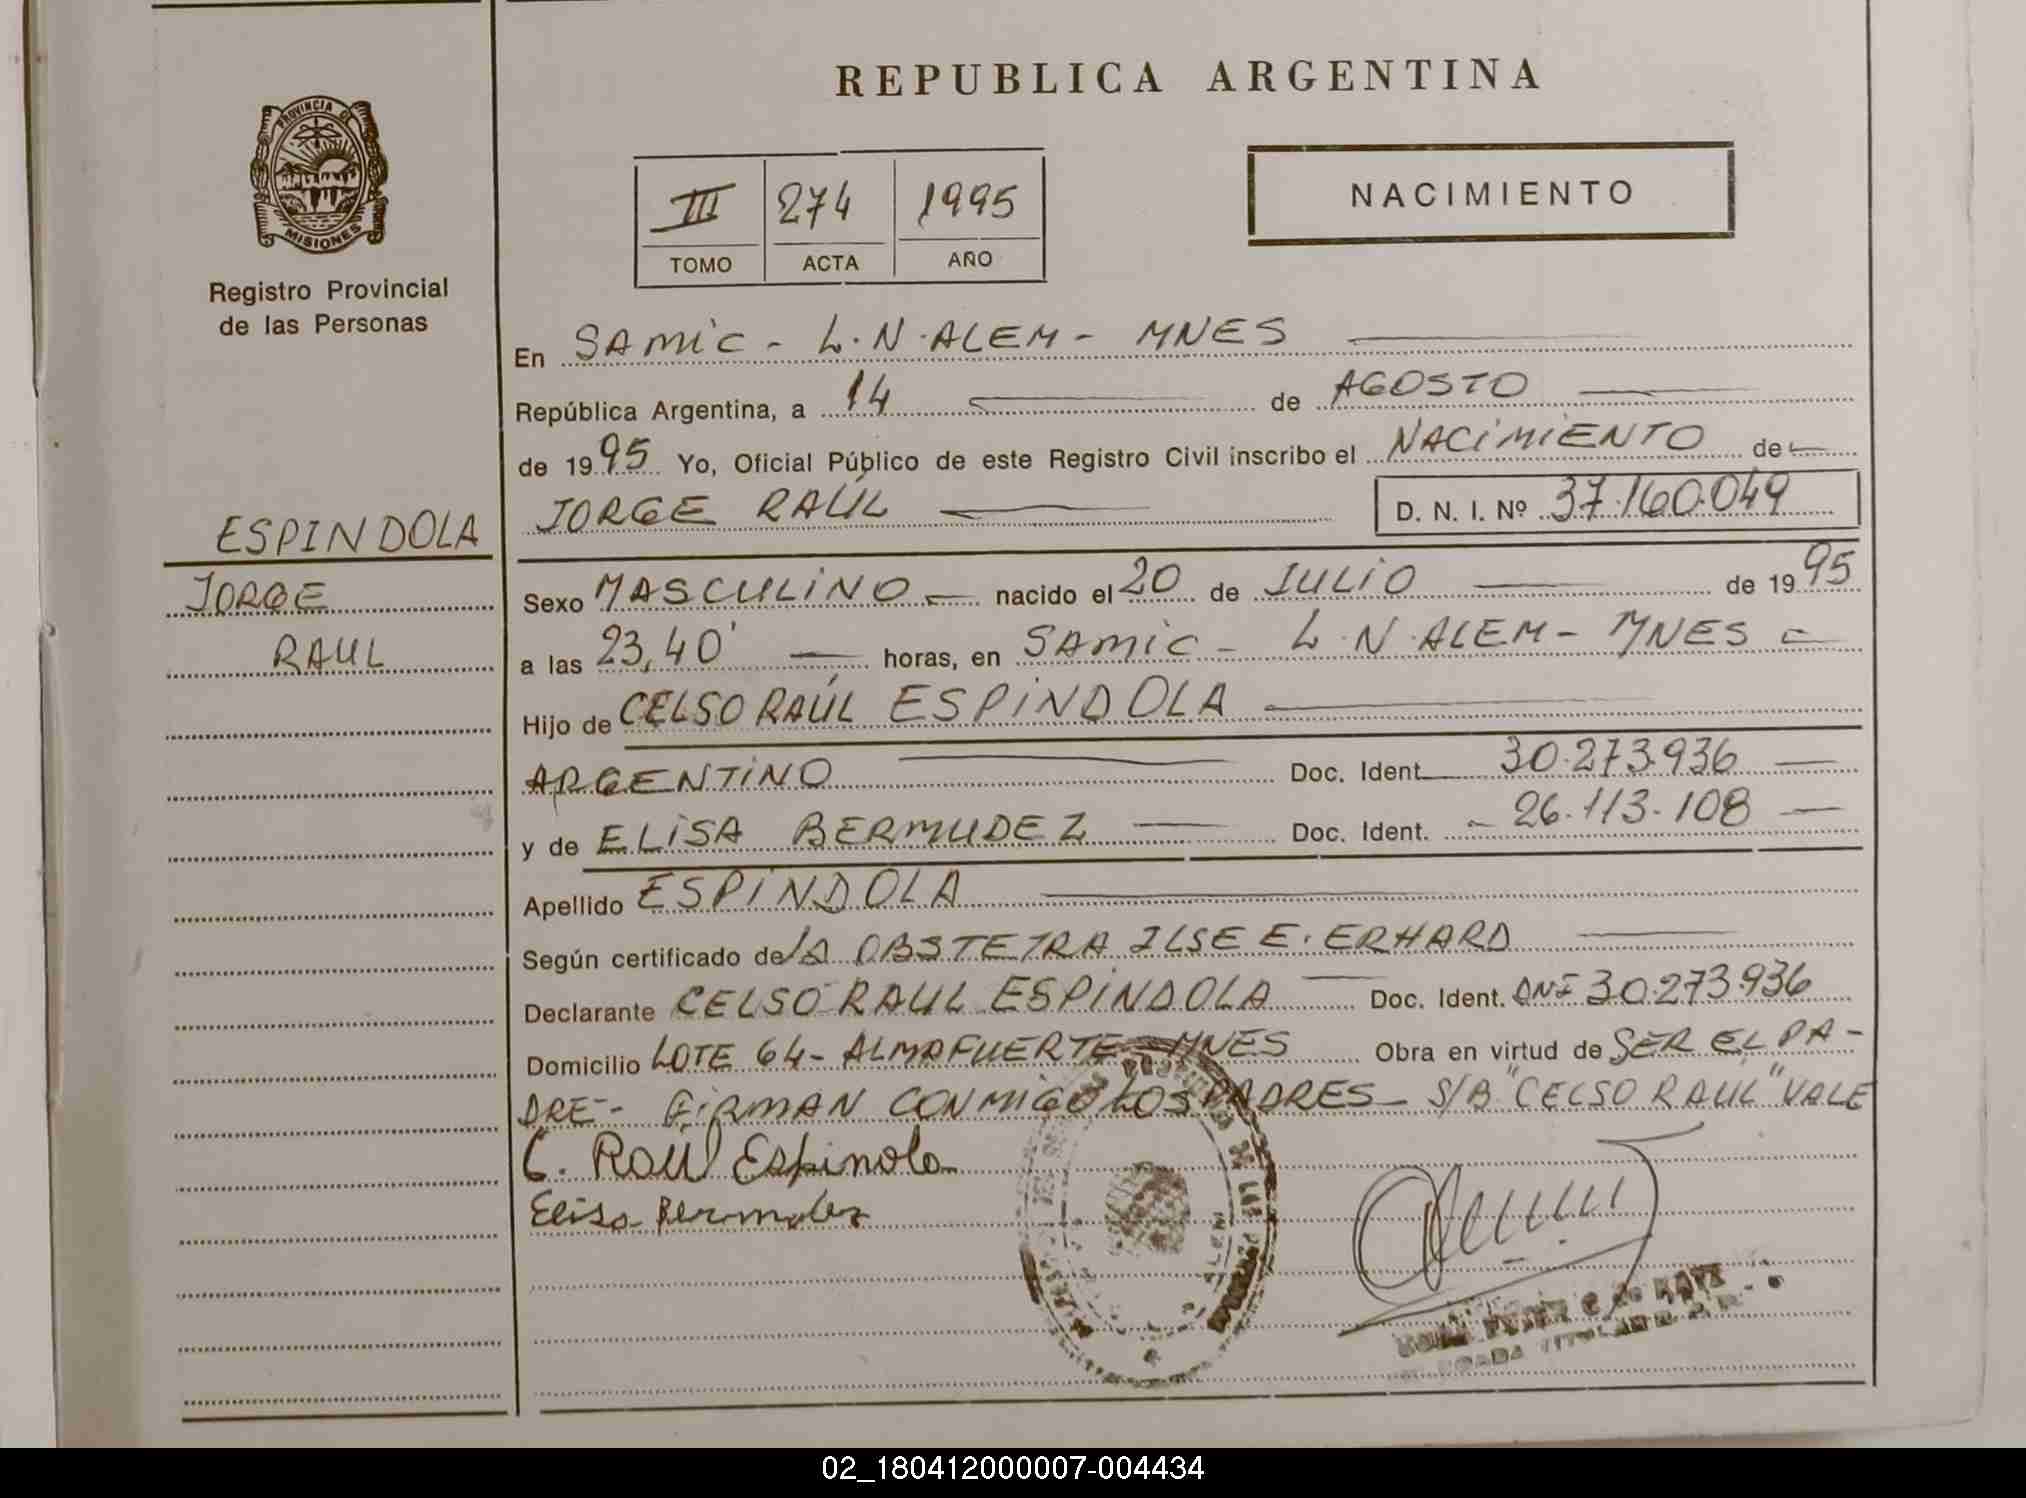 REPUBLICA ARGENTINA
PROVINCIA DE
MISIONES
Registro Provincial
de las Personas
III 274 1995
TOMO ACTA AÑO
NACIMIENTO
ESPINDOLA
JORGE
RAUL
En SAMIC - L.N.ALEM - MNES
República Argentina, a 14 de AGOSTO
de 1995 Yo, Oficial Público de este Registro Civil inscribo el NACIMIENTO de
JORGE RAÚL D. N. I. Nº 37.160.049
Sexo MASCULINO nacido el 20 de JULIO de 1995
a las 23,40' horas, en SAMIC - L.N.ALEM - MNES
Hijo de CELSO RAÚL ESPINDOLA
ARGENTINO Doc. Ident. 30.273.936
y de ELISA BERMUDEZ Doc. Ident. 26.113.108
Apellido ESPINDOLA
Según certificado de la OBSTETRA ILSE E. ERHARD
Declarante CELSO RAUL ESPINDOLA Doc. Ident. DNI 30.273.936
Domicilio LOTE 64 - ALMAFUERTE - MNES Obra en virtud de SER EL PA-
DRE - FIRMAN CONMIGO LOS PADRES - S/B "CELSO RAUL" VALE
C. Raúl Espinola
Elisa Bermudez
02_180412000007-004434